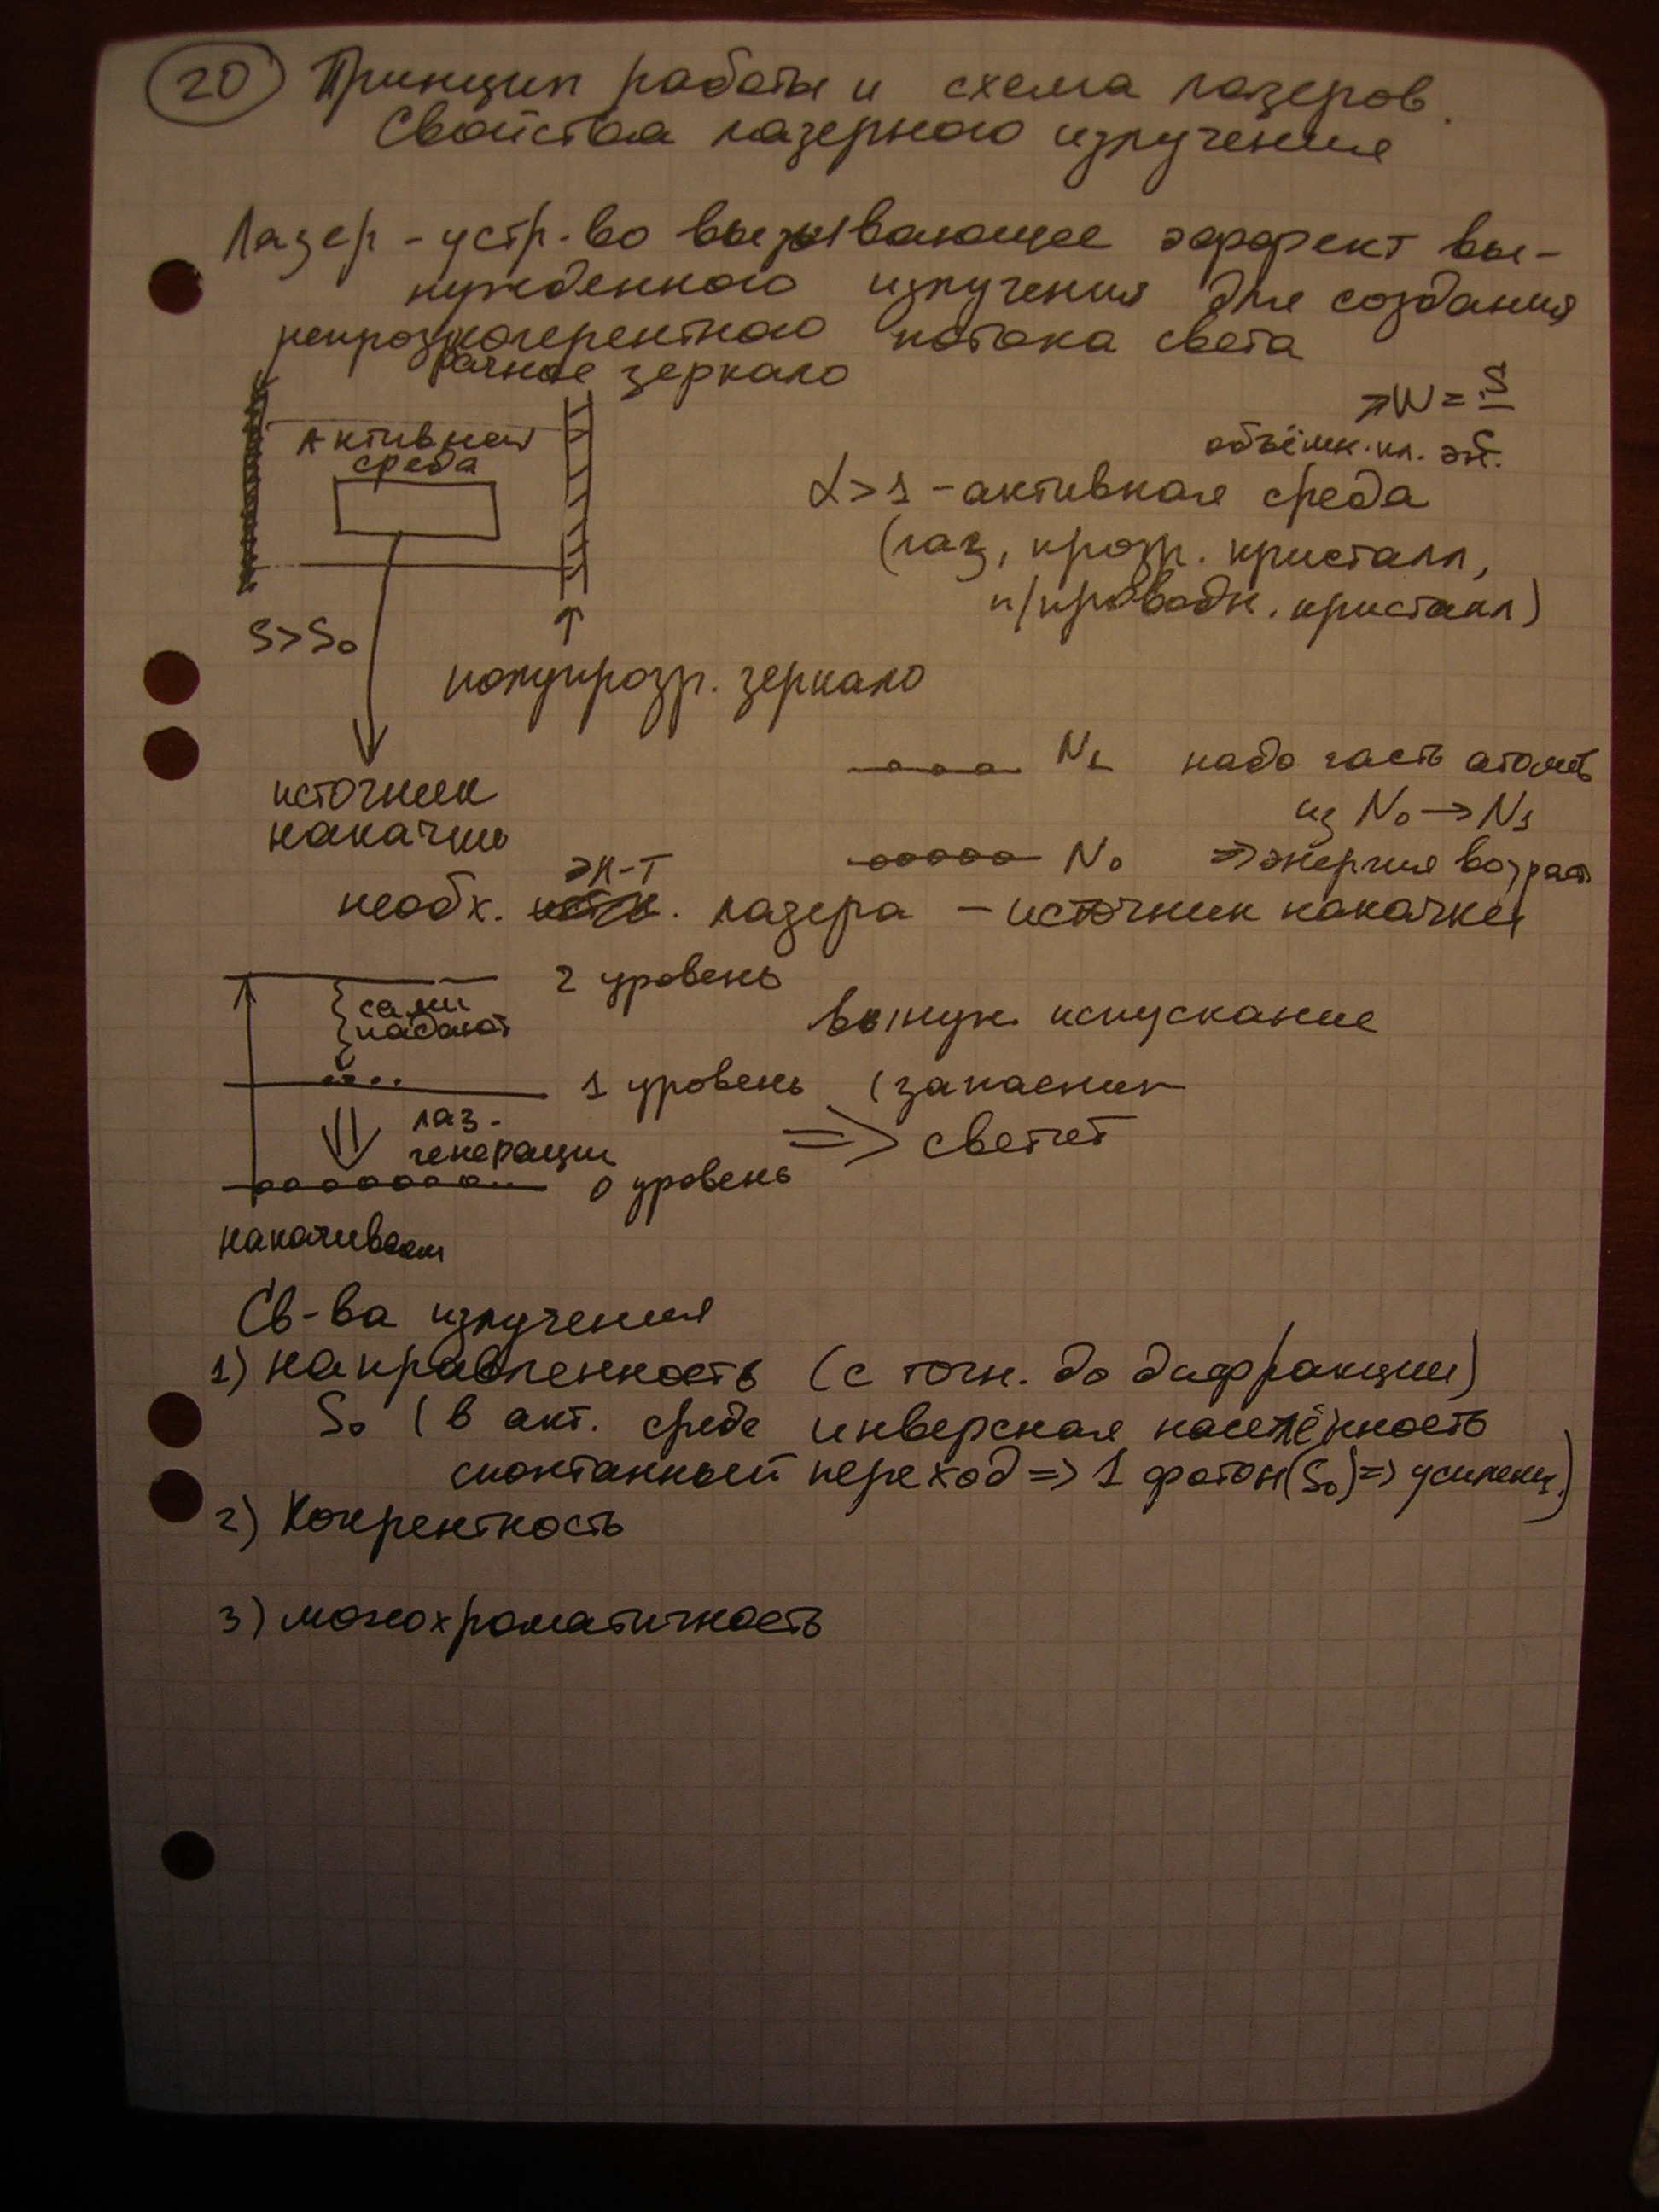 20 Принцип работы и схема лазеров.
Свойства лазерного излучения
Лазер - устр-во вызывающее эффект вы-
нужденного излучения для создания
когерентного потока света
непрозрачное зеркало
Активная
среда
S > S₀
источник
накачки
полупрозр. зеркало
W = S
объёмн. пл. эн.
α > 1 - активная среда
(газ, прозр. кристалл,
п/проводн. кристалл)
N₁ надо часть атомов
из N₀ → N₁
N₀ => энергия возраст
необх. эл-т лазера - источник накачки
2 уровень
сами
падают
вынуж. испускание
1 уровень
лаз.
генерации
=> светет
0 уровень
накачиваем
Св-ва излучения
1) направленность (с точн. до дифракции)
S₀ (в акт. среде инверсная населённость
спонтанный переход => 1 фотон (S₀) => усилени.)
2) Когерентность
3) монохроматичность